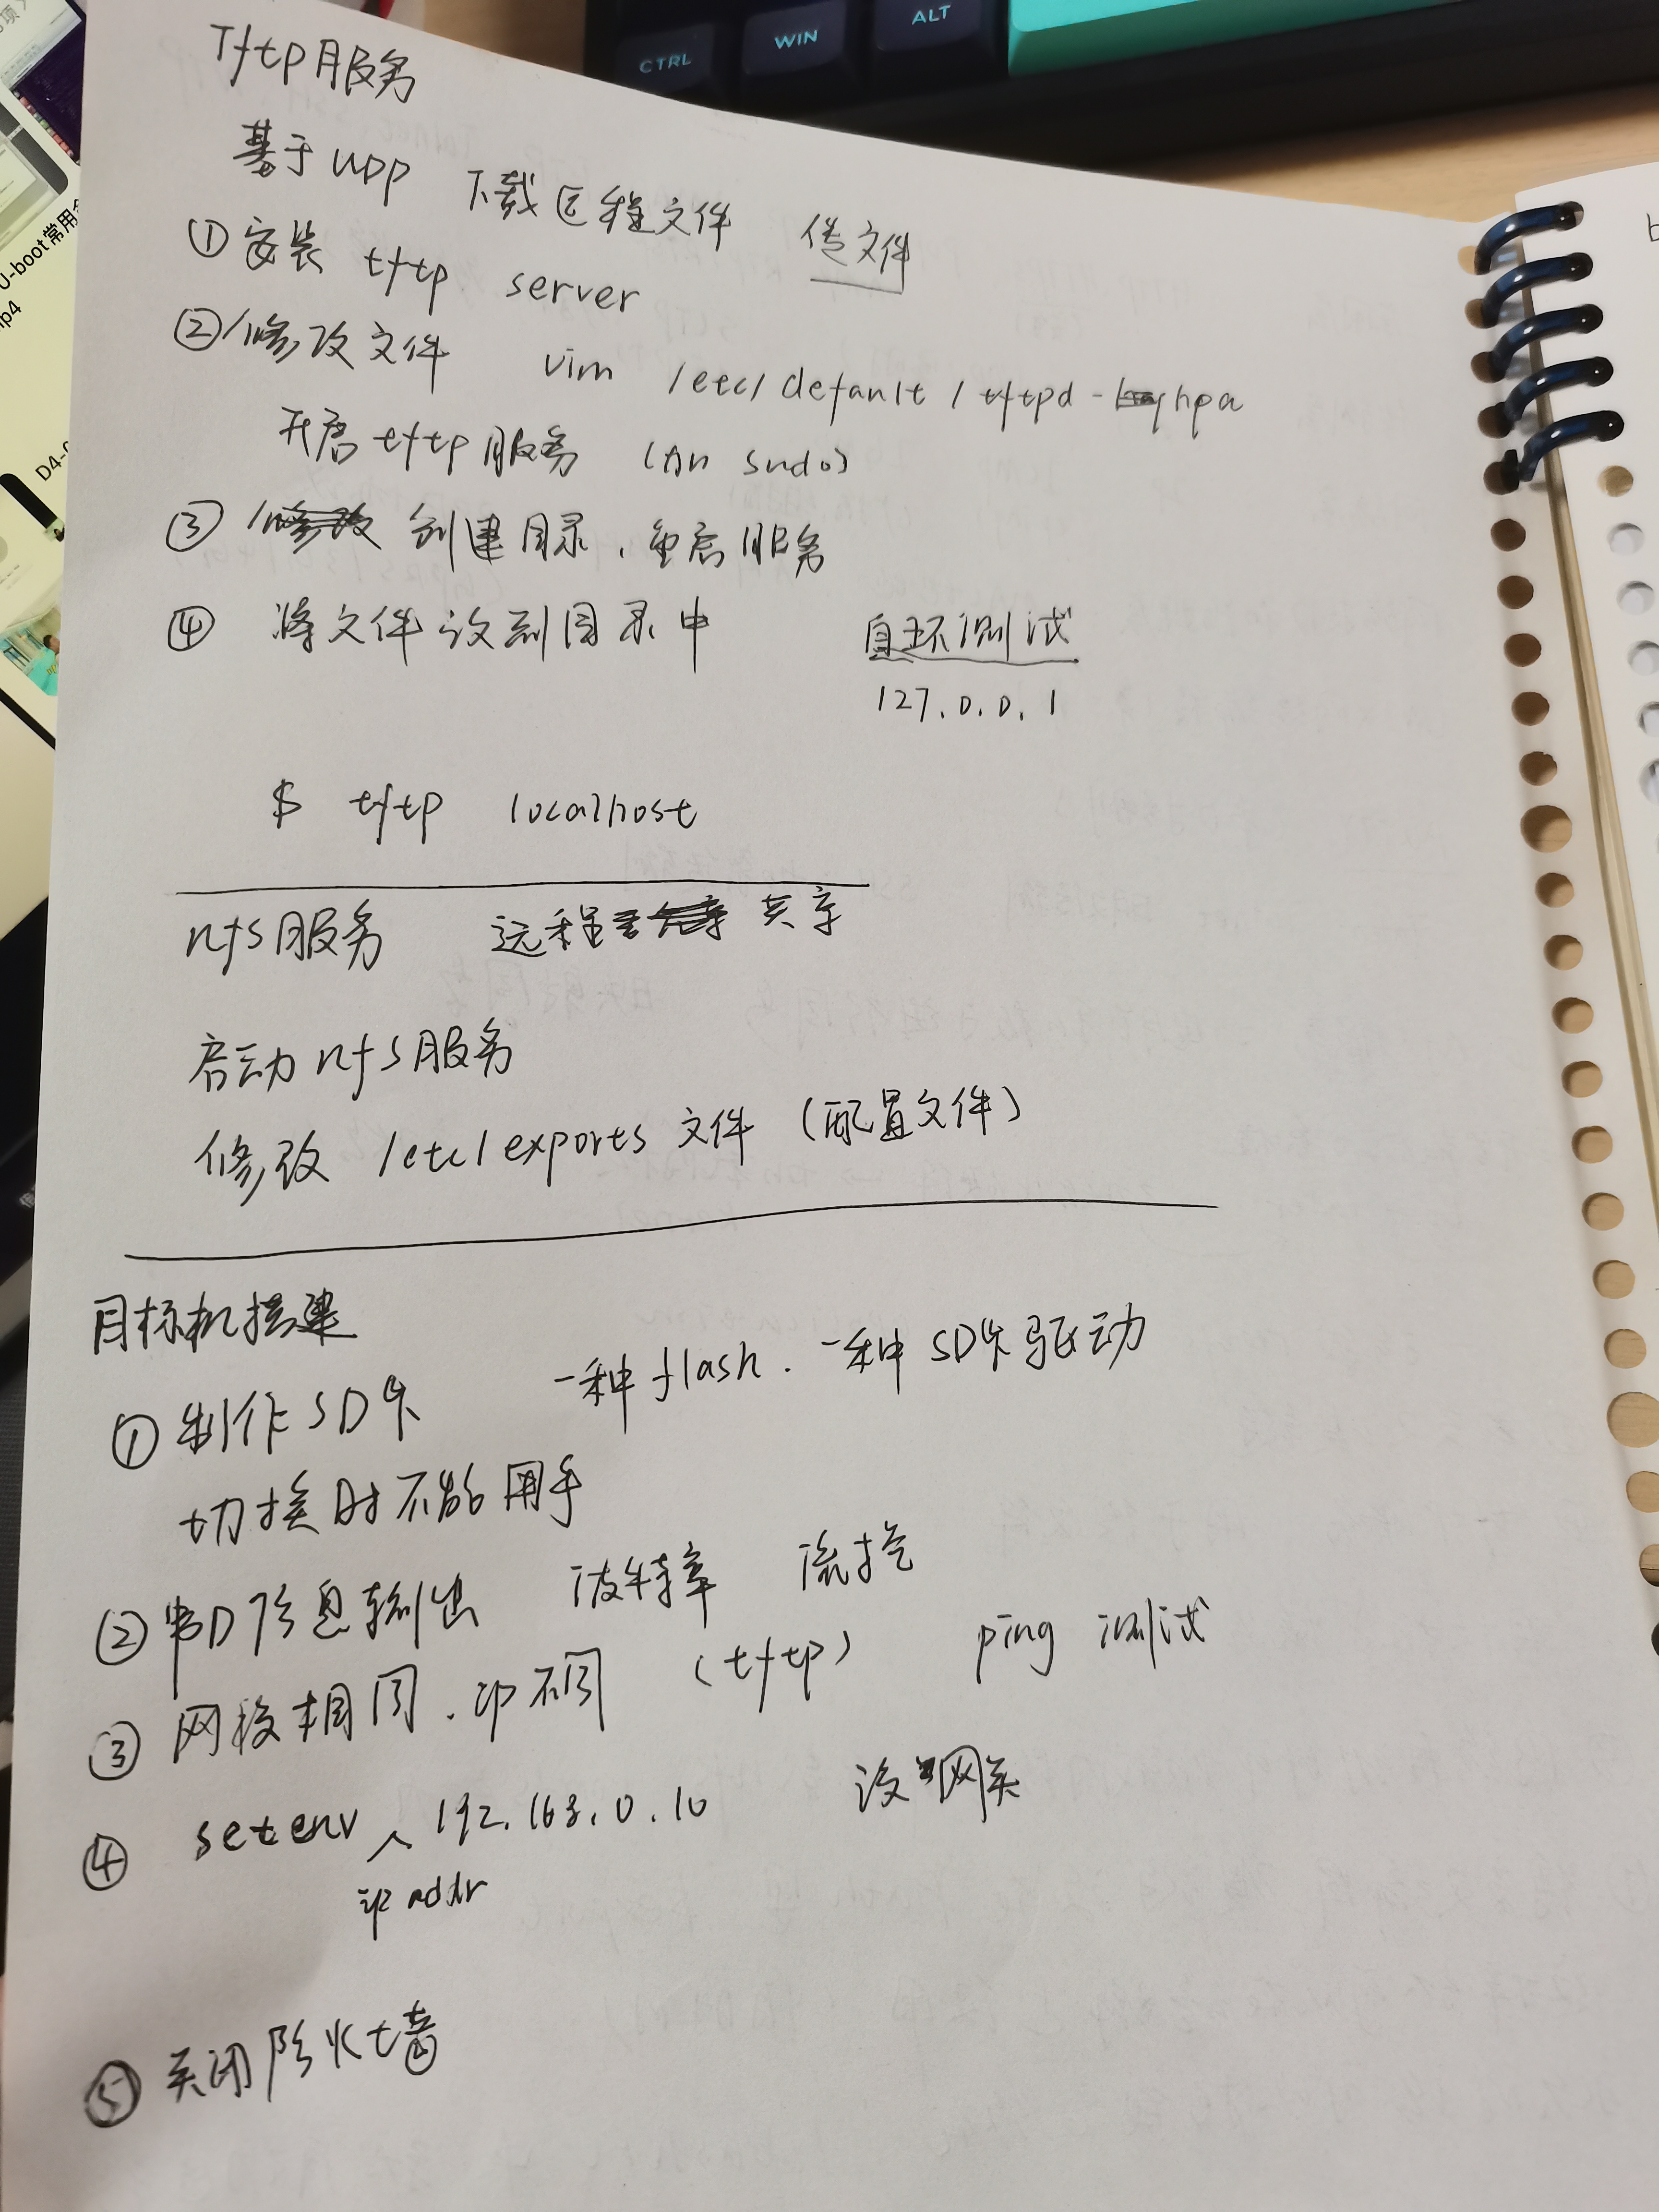 CTRL WIN ALT
U-boot常用
mp4
Tftp服务
基于UDP 下载远程文件 传文件
①安装 tftp server
②修改文件 vim /etc/default/tftpd-hpa
开启tftp服务 (加 sudo)
③ 修改 创建目录,重启服务
④ 将文件放到目录中 自环测试
127.0.0.1
$ tftp localhost
nfs服务 远程 共享
启动nfs服务
修改 /etc/exports 文件 (配置文件)
目标机搭建
①制作SD卡 一种flash. 一种SD卡驱动
切换时不能用手
②串口信息输出 波特率 流控
③网段相同.IP不同 (tftp) ping 测试
④ setenv ipaddr 192.168.0.10 没网关
⑤关闭防火墙